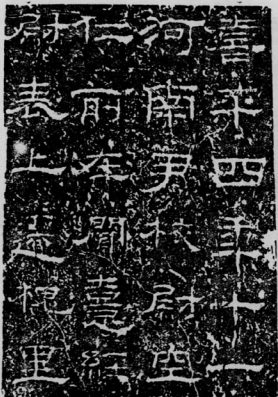 熹平四年十一
河南尹校尉空
仁前在聞憙經
尉表上遷槐里